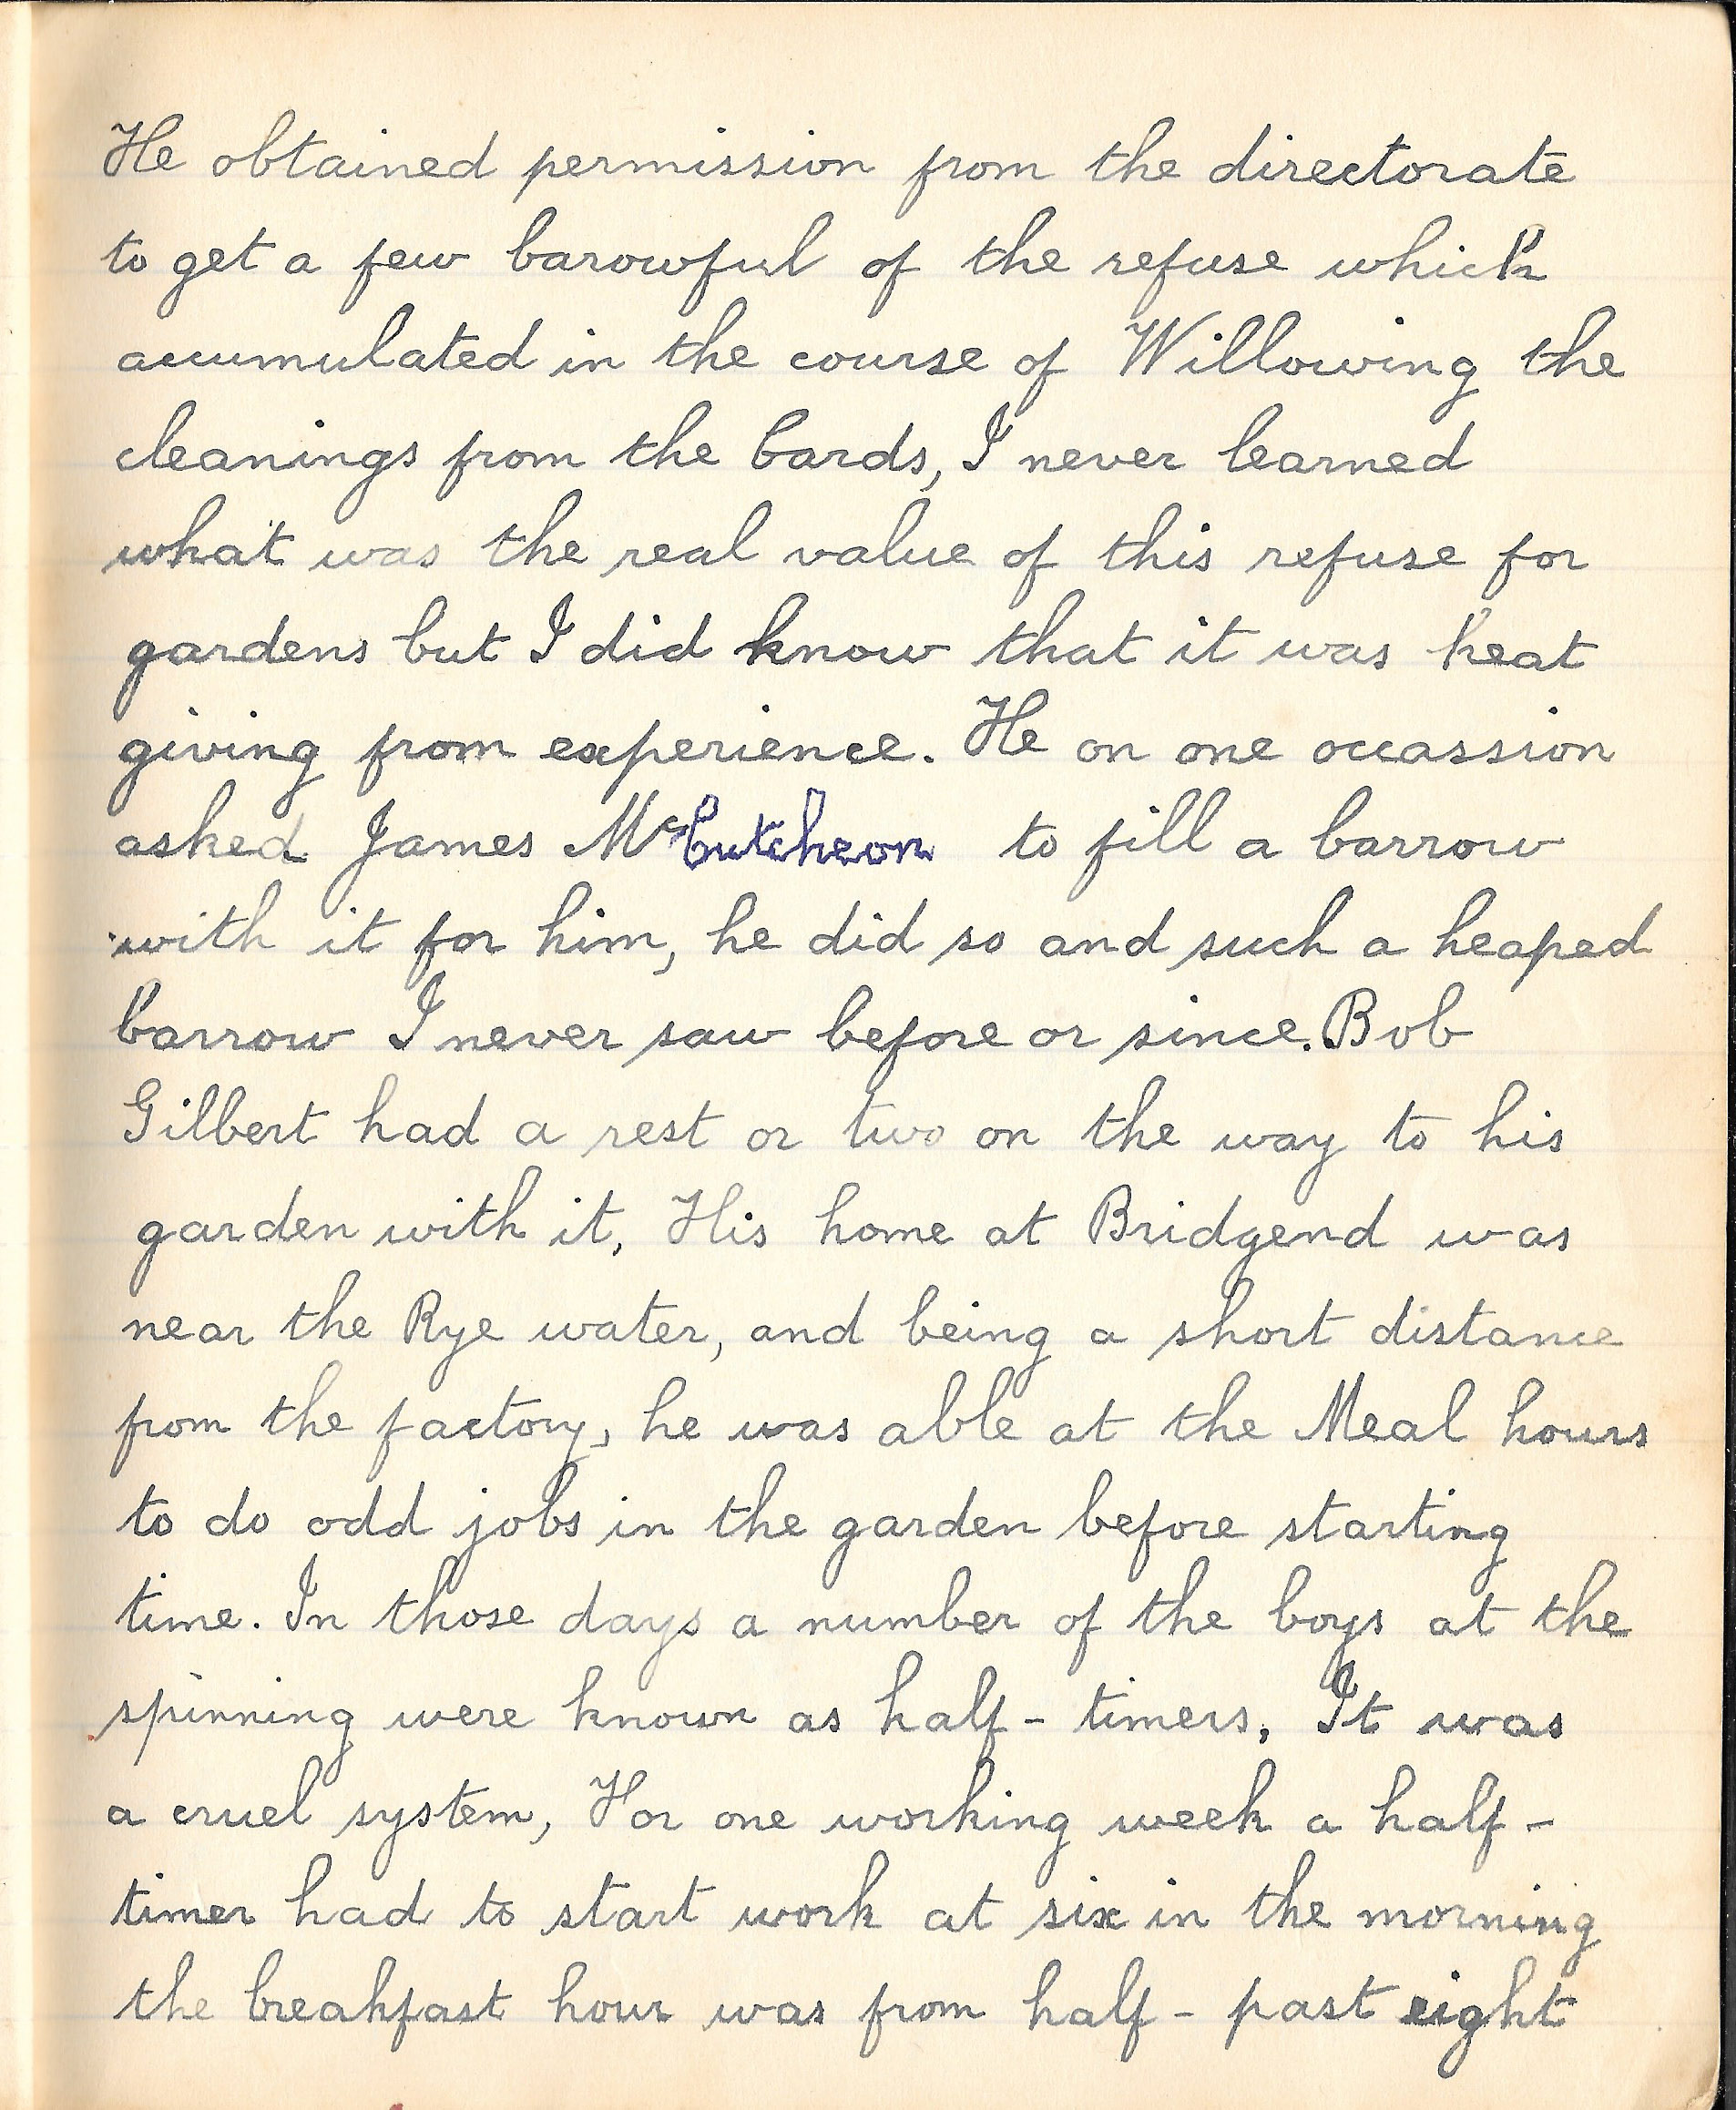 He obtained permission from the directorate
to get a few barowful of the refuse which
accumulated in the course of Willowing the
cleanings from the Cards, I never learned
what was the real value of this refuse for
gardens but I did know that it was heat
giving from experience. He on one occassion
asked James McCutcheon to fill a barrow
with it for him, he did so and such a heaped
barrow I never saw before or since. Bob
Gilbert had a rest or two on the way to his
garden with it, His home at Bridgend was
near the Rye water, and being a short distance
from the factory, he was able at the Meal hours
to do odd jobs in the garden before starting
time. In those days a number of the boys at the
spinning were known as half-timers, It was
a cruel system, For one working week a half-
timer had to start work at six in the morning
the breakfast hour was from half-past eight